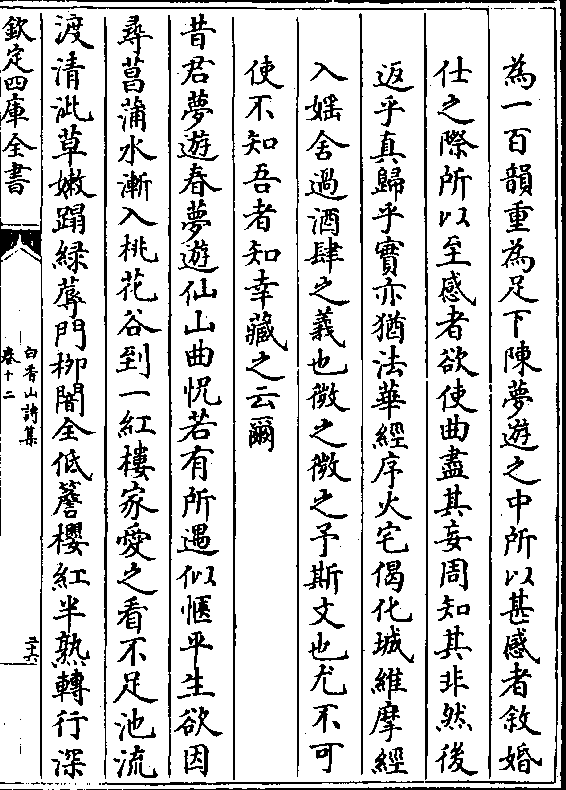 為一百韻重為足下陳夢遊之中所以甚感者敘婚
仕之際所以至感者欲使曲盡其妄周知其非然後
返乎真歸乎實亦猶法華經序火宅偈化城維摩經
入婬舍過酒肆之義也微之微之予斯文也尤不可
使不知吾者知幸藏之云爾
昔君夢遊春夢遊仙山曲怳若有所遇似愜平生欲因
尋菖蒲水漸入桃花谷到一紅樓家愛之看不足池流
渡清泚草嫩蹋綠蓐門栁闇全低簷櫻紅半熟轉行深
欽定四庫全書
白香山詩集
卷十二
三六